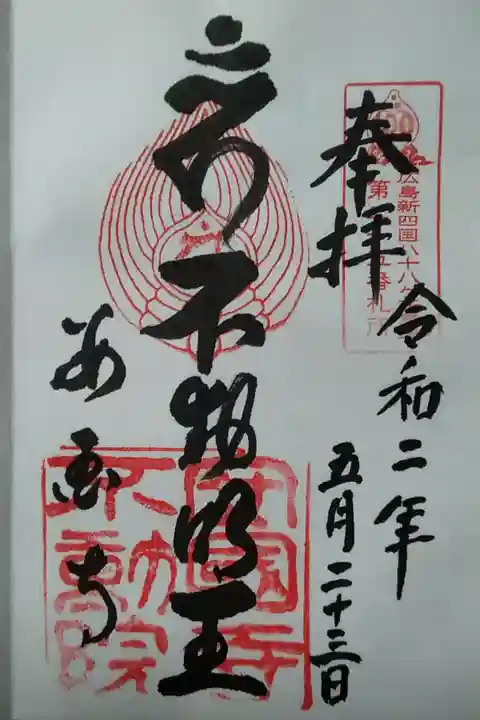 奉拝
令和二年
五月二十三日
広島新四国八十八ヶ
第
番札所
不動明王
安国寺
安國寺
不動院